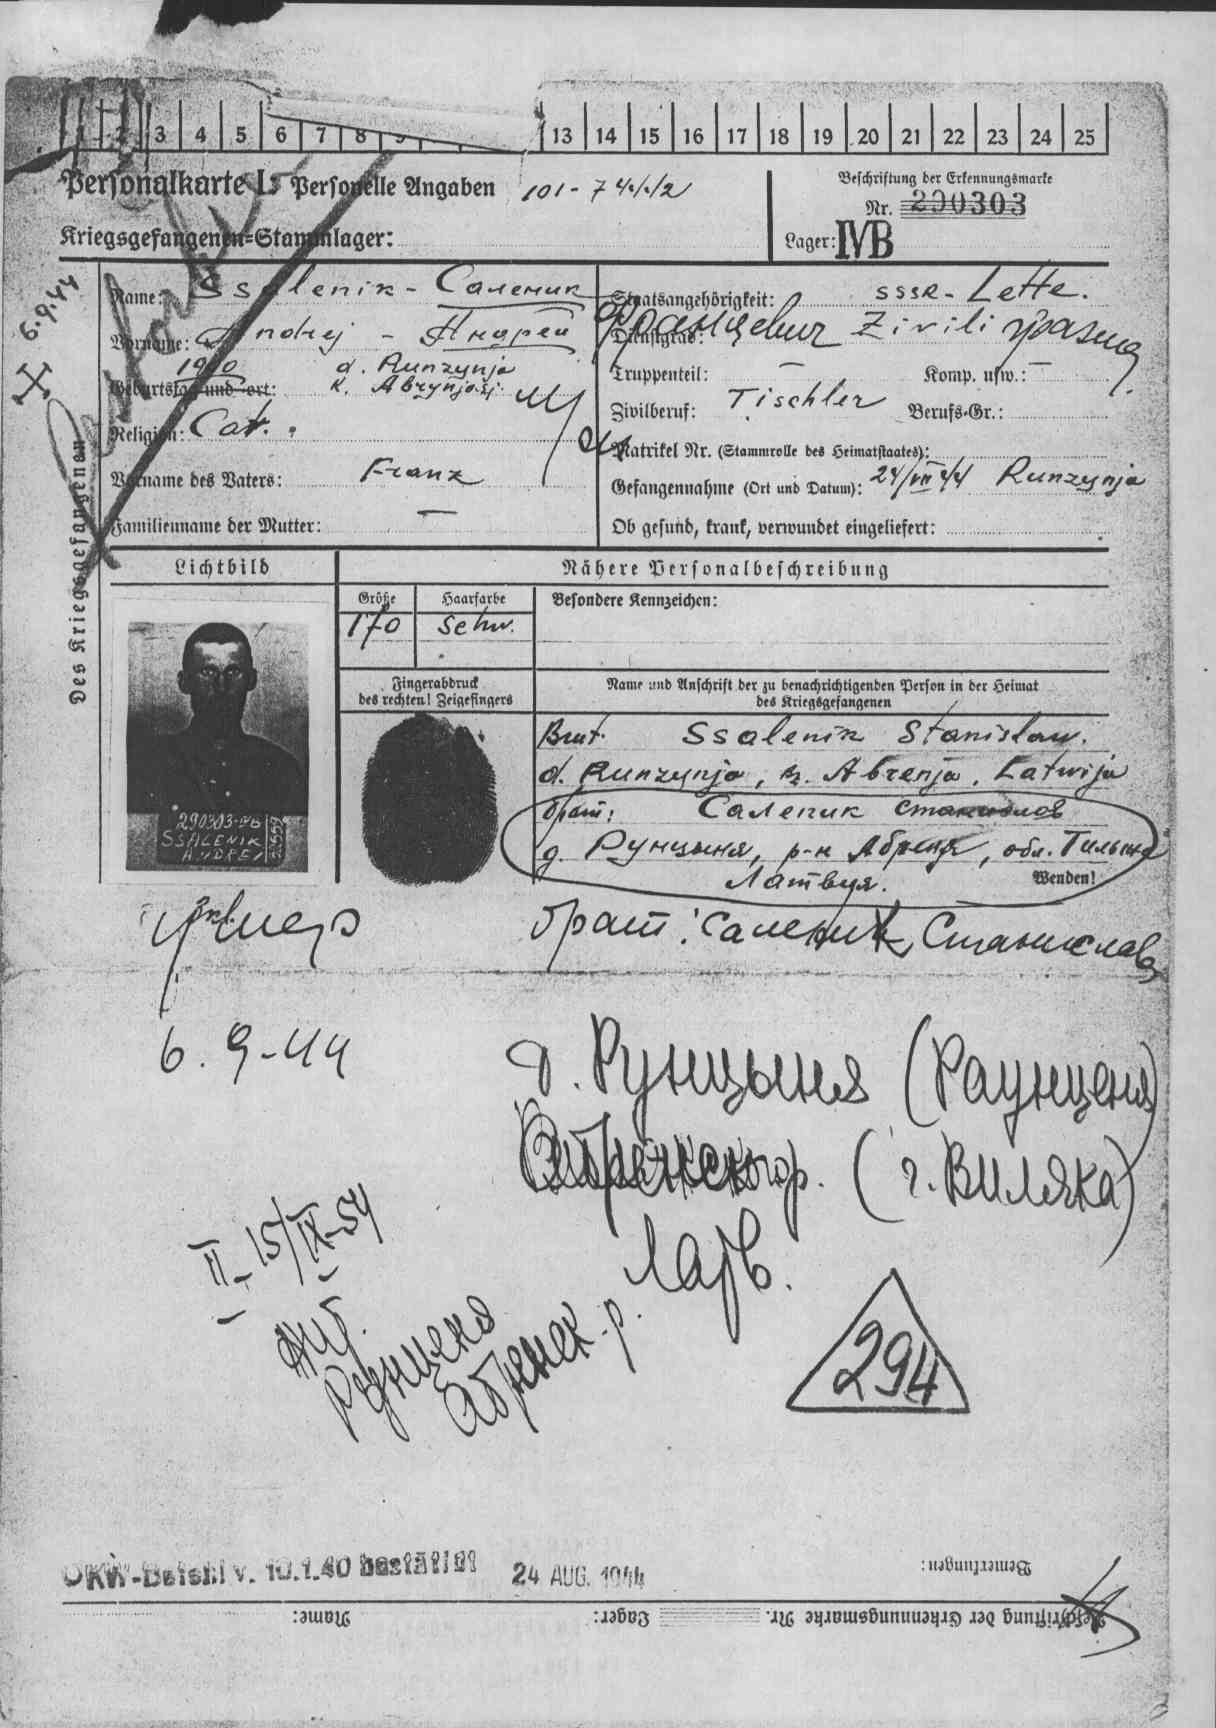 3 4 5 6 7 8 9 13 14 15 16 17 18 19 20 21 22 23 24 25
Personalkarte I: Personelle Angaben
Beschriftung der Erkennungsmarke
Nr. 290303
Kriegsgefangenen-Stammlager:
Lager: IVB
6.9.44
Des Kriegsgefangenen
Name: Ssalenik - Саленик
Staatsangehörigkeit: SSSR - Lette.
Vorname: Andrej - Андрей Францевич
Dienstgrad: Zivili
Geburtstag und -ort: 1910 d. Runzynja
Truppenteil: — Komp. usw.: —
Zivilberuf: Tischler Berufs-Gr.:
Religion: Cat.
Matrikel Nr. (Stammrolle des Heimatstaates):
Vorname des Vaters: Franz
Gefangennahme (Ort und Datum): 24/VII 44 Runzynja
Familienname der Mutter: —
Ob gesund, krank, verwundet eingeliefert:
Lichtbild
Nähere Personalbeschreibung
Größe Haarfarbe Besondere Kennzeichen:
170 schw.
Fingerabdruck
des rechten! Zeigefingers
Name und Anschrift der zu benachrichtigenden Person in der Heimat
des Kriegsgefangenen
Ssalenik Stanislaw.
d. Runzynja, k. Abrenja, Latwija
290303-IVB
SSALENIK
ANDREJ
брат: Саленик Станислов
д. Рунцыня, р-н Абреня, обл. Тильжа
Латвуя.
Wenden!
брат: Саленик Станислав
6. 9-44
д. Рунцыня (Раунценя)
(г. Виляка)
Латв.
II-15/IX-54
Рунценя
Абренск. р.
294
OKW-Befehl v. 10.1.40 bestätigt
24 AUG. 1944
Bemerkungen:
Name: Lager: Beschriftung der Erkennungsmarke Nr.